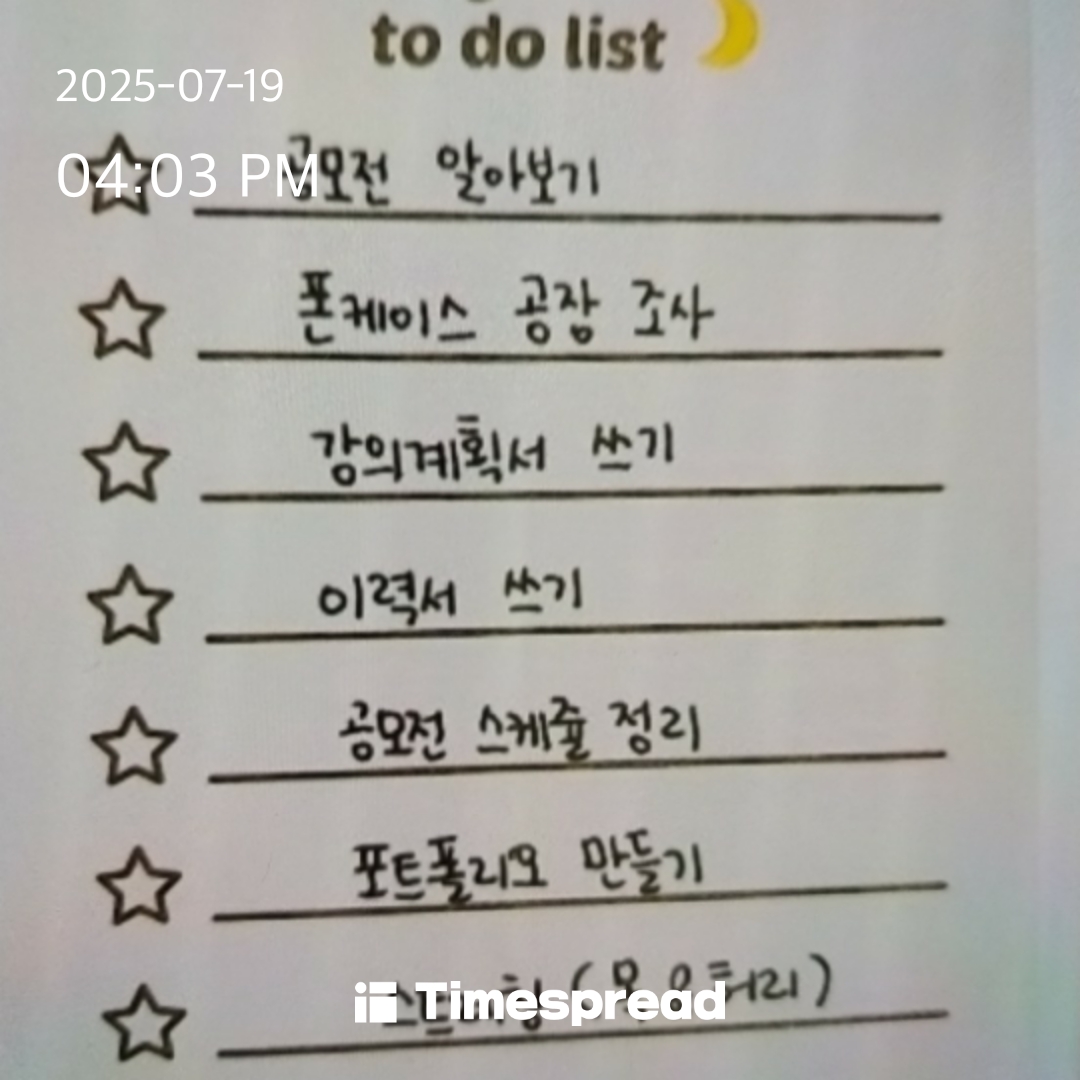 to do list
2025-07-19
04:03 PM
공모전 알아보기
폰케이스 공장 조사
강의계획서 쓰기
이력서 쓰기
공모전 스케쥴 정리
포트폴리오 만들기
Timespread